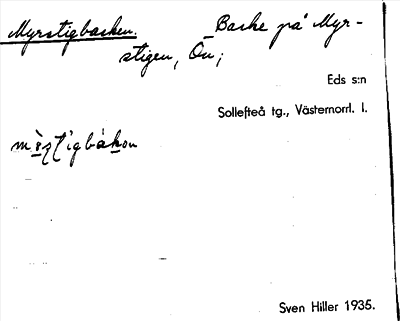 Myrstigbacken. Backe på Myr-
stigen, Ön;
Eds s:n
Sollefteå tg., Västernorrl. l.
Sven Hiller 1935.